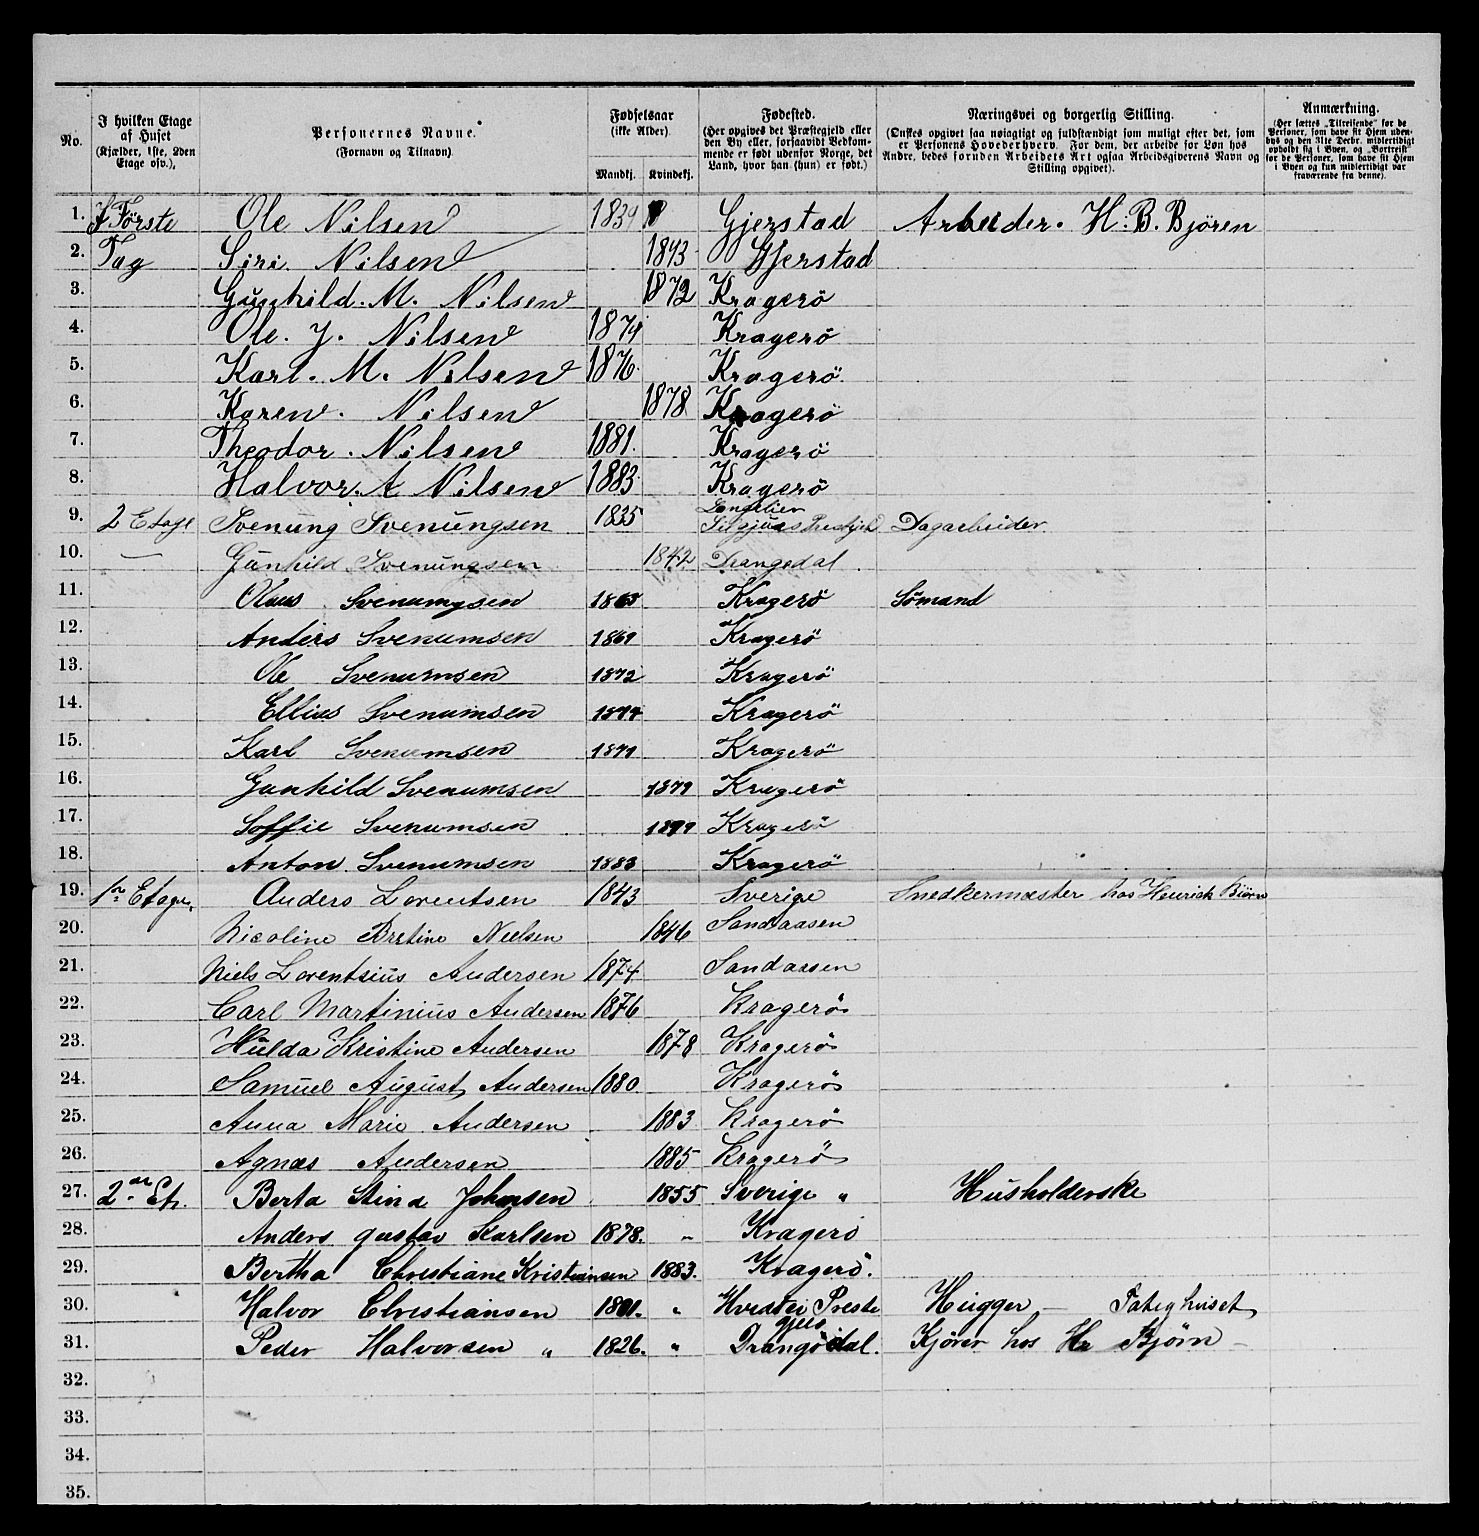 No.
I hvilken Etage af Huset (Kjælder, 1ste, 2den Etage osv.),
Personernes Navne. (Fornavn og Tilnavn)
Fødselsaar (ikke Alder). Mandkj. Kvindekj.
Fødested. (Her opgives det Præstegjeld eller den By eller, forsaavidt Vedkommende er født udenfor Norge, det Land, hvor han (hun) er født.)
Næringsvei og borgerlig Stilling. (Ønskes opgivet saa nøiagtigt og fuldstændigt som muligt efter det, som er Personens Hovederhverv. For dem, der arbeide for Løn hos Andre, bedes foruden Arbeidets Art ogsaa Arbeidsgiverens Navn og Stilling opgivet).
Anmærkning. (Her sættes „Tilreisende" for de Personer, som have sit Hjem udenbys og den 31te Decbr. midlertidigt opholdt sig i Byen, og „Bortreist" for de Personer, som have sit Hjem i Byen og kun midlertidigt var fraværende fra denne).
1. Første Ole Nilsen 1839 Gjerstad Arbeider. H. B. Björen
2. Tag Siri Nilsen 1843 Gjerstad
3. Gunhild. M. Nilsen 1872 Kragerö
4. Ole. J. Nilsen 1874 Kragerö
5. Karl. M. Nilsen 1876. Kragerö.
6. Karen. Nilsen 1878 Kragerö
7. Theodor. Nilsen 1881. Kragerö
8. Halvor. A Nilsen 1883 Kragerö
9. 2 Etage Svenung Svenungsen 1835 Dagarbeider
10. — Gunhild Svenungsen 1842 Drangedal
11. Olaus Svenumgsen Kragerö Sömand
12. Anders Svenumsen 1869 Kragerö
13. Ole Svenumsen 1872 Kragerö
14. Ellius Svenumsen 1874 Kragerö
15. Karl Svenumsen Kragerö
16. Gunhild Svenumsen 1879 Kragerö
17. Soffie Svenumsen Kragerö
18. Anton Svenumsen 1883 Kragerö
19. 1n Etage. Anders Lorentsen 1843 Sverige Snedkermæster hos Henrich Biörn
20. Nicoline Bretine Nielsen 1846 Sandaasen
21. Niels Lorentsius Andersen 1874 Sandassen
22. Carl Martinius Andersen 1876 Kragerö
23. Hulda Kristine Andersen 1878 Kragerö
24. Samuel August Andersen 1880 Kragerö
25. Anna Marie Andersen 1883 Kragerö
26. Agnæs Andersen 1885 Kragerö
27. 2den Et. Berta Stina Johansen 1855 Sverige " Husholderske
28. Anders gustav Karlsen 1878. " Kragerö
29. Bertha Christiane Kristiansen 1883. Kragerö.
30. Halvor Christiansen 1801. " Præste Hugger — Fatighuset
gjeld
31. Peder Halvorsen " 1826. " Drangödal. Kjörer hos Hr Bjørn —
32.
33.
34.
35.